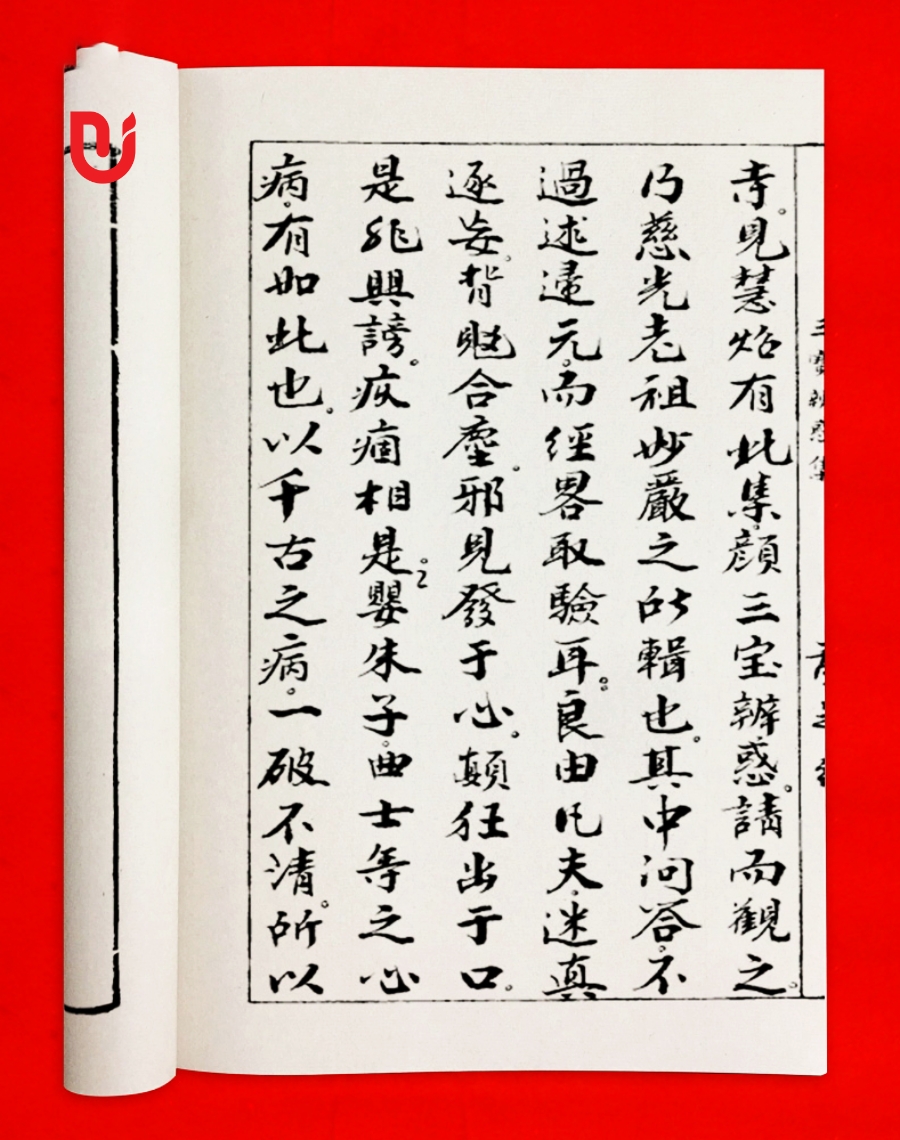 三寶辨惑集
寺。見慧焰有此集。顔三宝辦惑。請而觀之。
乃慈光老祖妙嚴之所輯也。其中问答。不
過述還元。而經畧取驗耳。良由凡夫。迷真
逐妄。背合塵。邪見發于心。顛狂出于口。
是非興謗。痼相是。嬰朱子。曲士等之心
病。有如此也。以千古之病。一破不清。所以